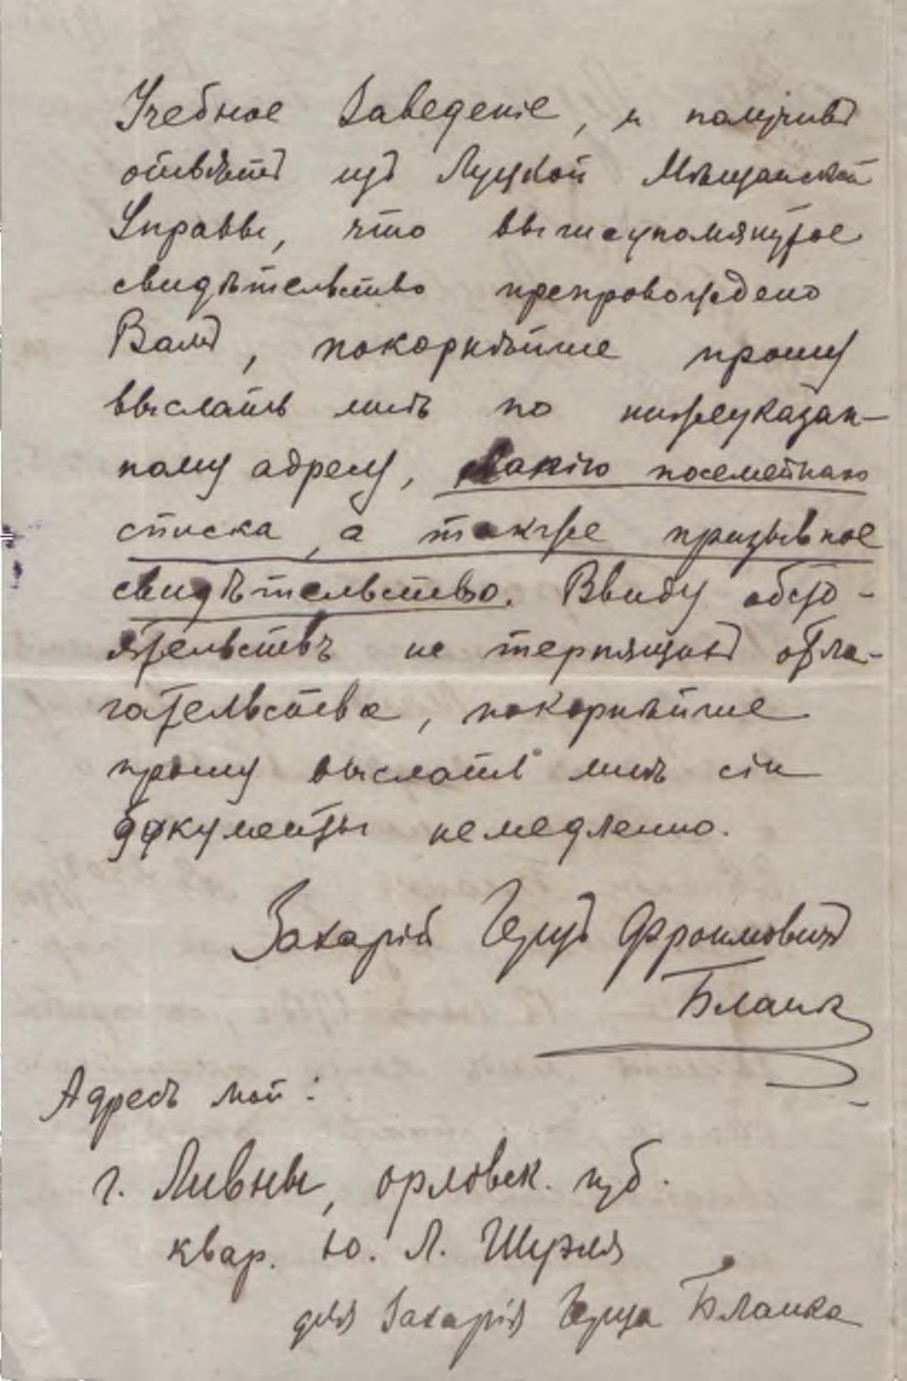 Учебное Заведеніе, и получивъ
отвѣтъ изъ Луцкой Мѣщанской
Управы, что вышеупомянутое
свидѣтельство препровождено
Вамъ, покорнѣйше прошу
выслать мнѣ по нижеуказан-
ному адресу, копію посемейнаго
списка, а также призывное
свидѣтельство. Ввиду обсто-
ятельствъ не терпящихъ отла-
гательства, покорнѣйше
прошу выслать мнѣ сіи
документы немедленно.
Захарій Герцъ Фроимовичъ
Бланк
Адресъ мой:
г. Ливны, орловск. губ.
квар. Ю. Л.
для Захарія Герца Бланка